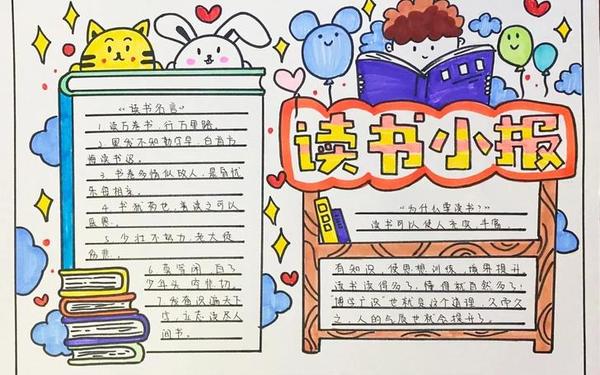 读书小报
"读书名言"
1. 读万卷书,行万里路。
2. 黑发不知勤学早,白首方
悔读书迟。
3. 书卷多情似故人,晨昏忧
乐每相亲。
4. 书犹药也,善读之可以
医愚。
5. 少壮不努力,老大徒
伤悲。
6. 莫等闲,白了
少年头,空悲切。
7. 发奋识遍天下
字,立志读尽人
间书。
"为什么要读书?"
读书可以使人充实、丰富、
有知识、使思想训练、效果提升
读书读得多了,懂得就自然多了;
"博学广识"也就是这个道理,久而久
之,人的气质也就会提升了。